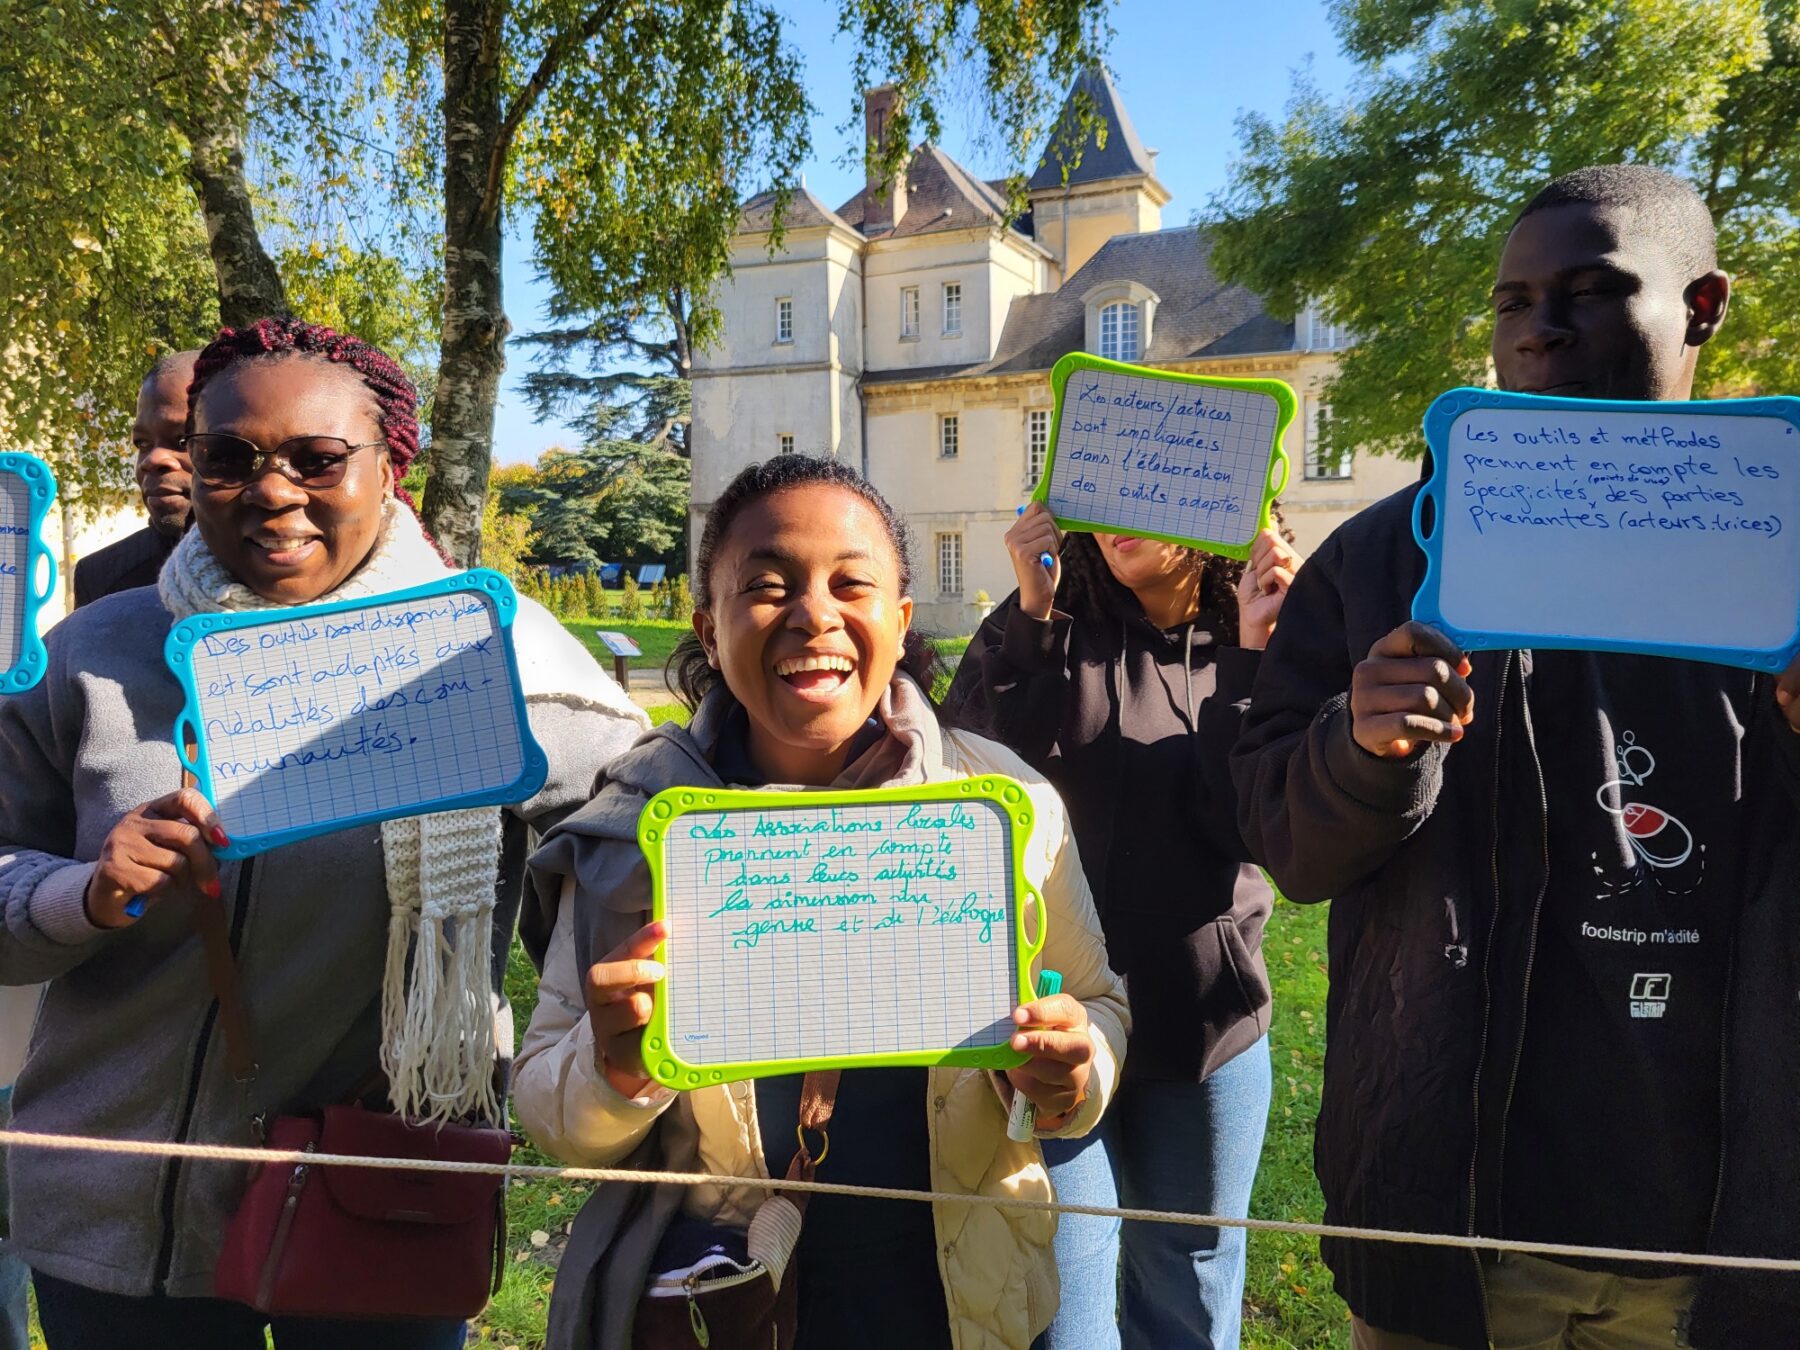 Des outils sont disponibles
et sont adaptés aux
réalités des com-
munautés.
Les Associations locales
prennent en compte
dans leurs activités
la dimension du
genre et de l'écologie
Maped
Les acteurs/actrices
sont impliquées
dans l'élaboration
des outils adaptés
Les outils et méthodes
prennent en compte les
(points de vue)
spécificités, des parties
prenantes (acteurs.trices)
foolstrip m'a dité